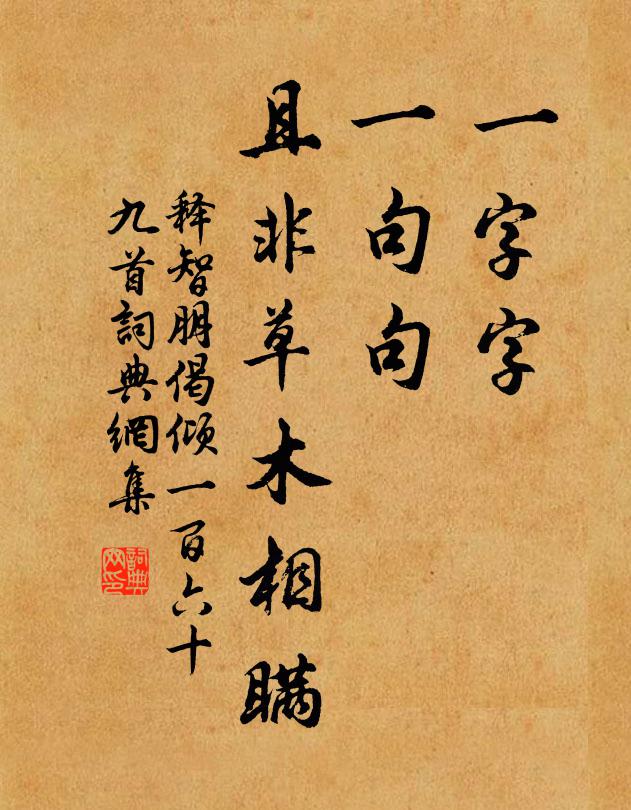 一字字
一句句
且非草木相瞒
释智朋偈倾一百六十
九首詞典網集
詞典
网印